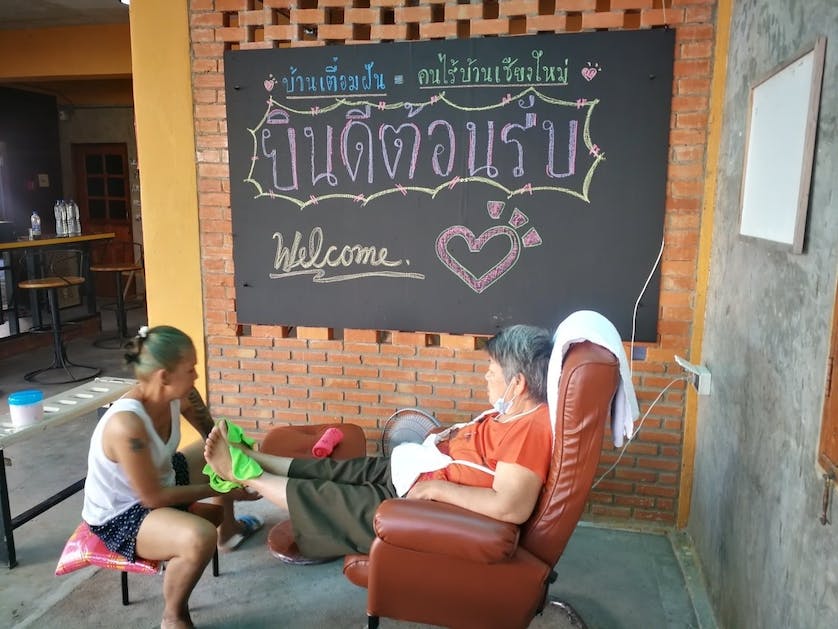 บ้านเตื่อมฝัน = คนไร้บ้านเชียงใหม่
ยินดีต้อนรับ
Welcome.